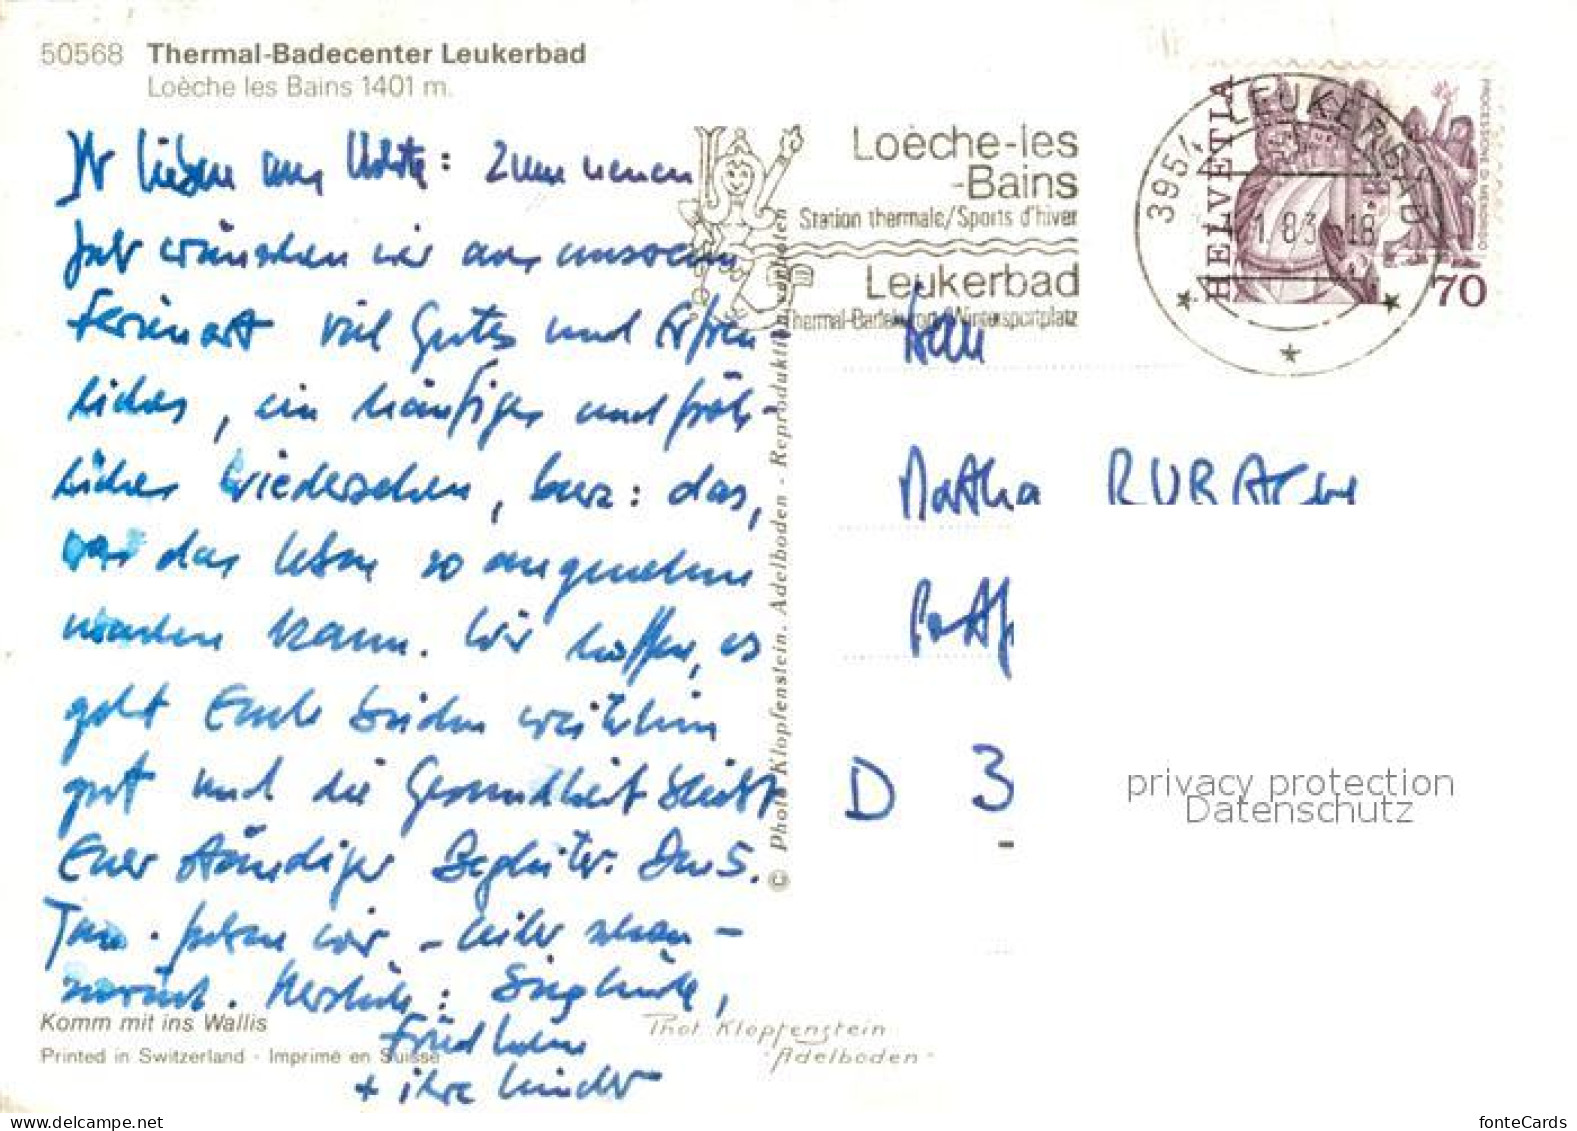 50568 Thermal-Badecenter Leukerbad
Loèche les Bains 1401 m.
Ihr lieben aus : Zum neuen
Jahr wünschen wir aus unserem
Ferienort viel Gutes und Erfreu
liches, ein häufiges und fröh-
liches Wiedersehen, kurz: das,
was das Leben so angenehm
machen kann. Wir hoffen, es
geht Euch beiden weiterhin
gut und die Gesundheit bleibt
Euer ständiger Begleiter. Am 5.
Jan. fahren wir - leider schon -
zurück. Herzlichst: Sieglinde,
Friedhelm
+ ihre Kinder
Komm mit ins Wallis
Printed in Switzerland - Imprimé en Suisse
Phot Klopfenstein
Adelboden
© Photo Klopfenstein, Adelboden - Reproduktion verboten
Loèche-les
-Bains
Station thermale/Sports d'hiver
Leukerbad
Thermal-Badekurort/Wintersportplatz
3954 LEUKERBAD
1.1.83-18
HELVETIA
PROCESSIONE D. MENDRISIO
70
Frau
Martha
D 3
privacy protection
Datenschutz
fonteCards